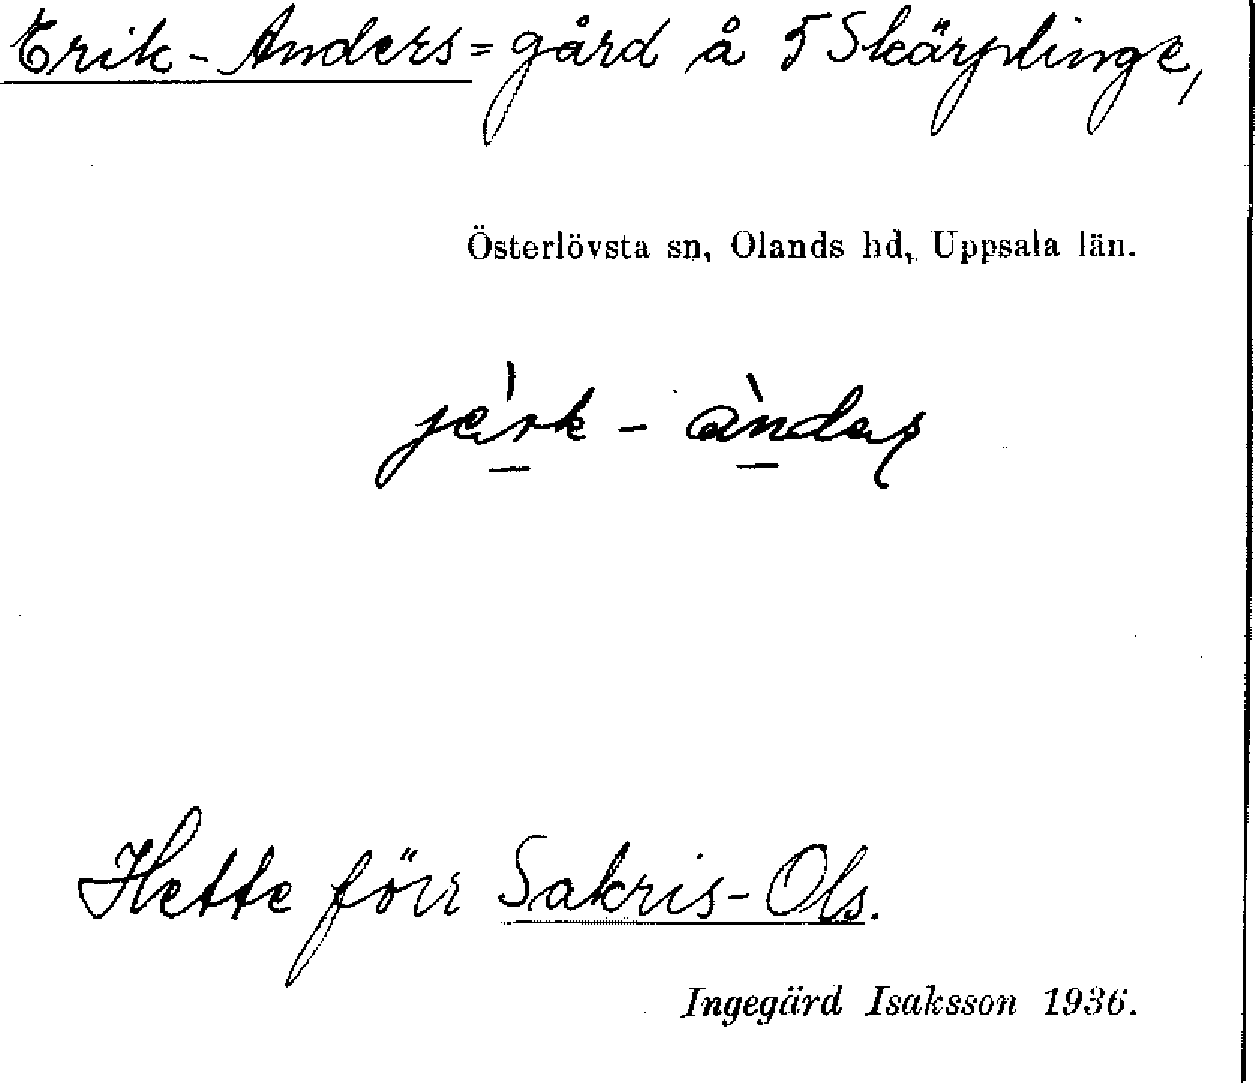 Erik-Anders=gård å 5 Skärplinge,
Österlövsta sn, Olands hd, Uppsala län.
jèrk - àndaʂ
Hette förr Sakris-Ols.
Ingegärd Isaksson 1936.